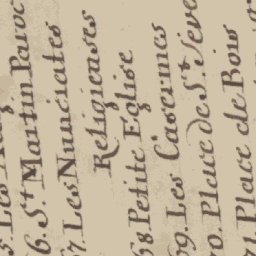 6. S.t Martin Paroc
67. Les Nunciates
Religieuses
68. Petite Eglise
69. Les Casermes
70. Place de S.t Seve
71. Place de Bois